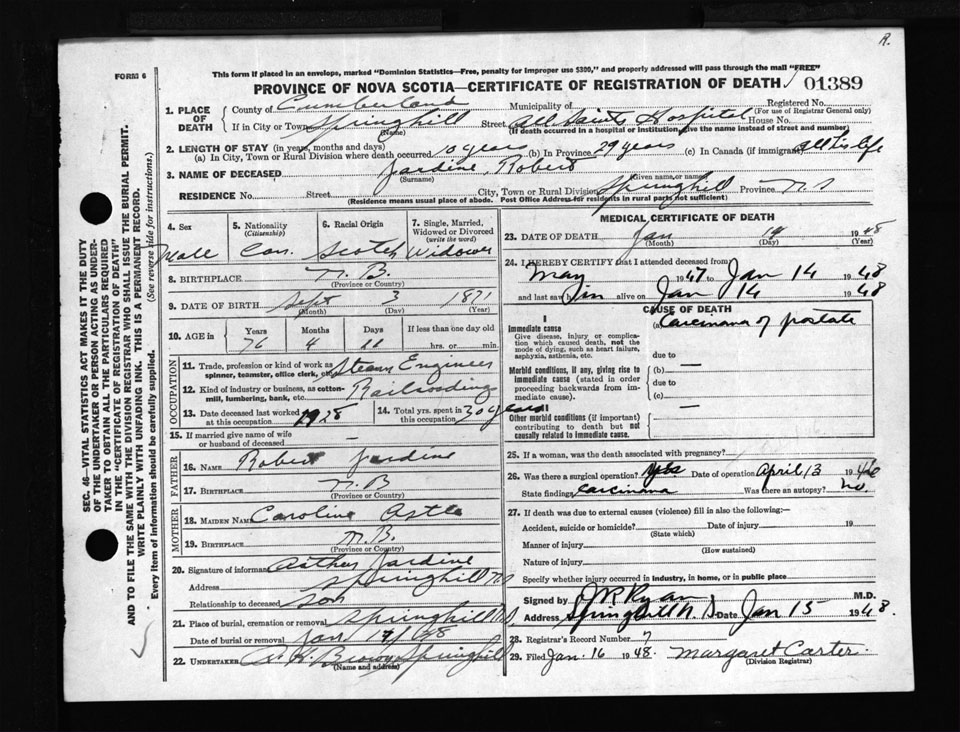 R.
FORM 6
This form if placed in an envelope, marked "Dominion Statistics—Free, penalty for improper use $300," and properly addressed will pass through the mail "FREE"
PROVINCE OF NOVA SCOTIA—CERTIFICATE OF REGISTRATION OF DEATH 01389
SEC. 46—VITAL STATISTICS ACT MAKES IT THE DUTY
OF THE UNDERTAKER OR PERSON ACTING AS UNDER-
TAKER TO OBTAIN ALL THE PARTICULARS REQUIRED
IN THE "CERTIFICATE OF REGISTRATION OF DEATH"
AND TO FILE THE SAME WITH THE DIVISION REGISTRAR WHO SHALL ISSUE THE BURIAL PERMIT.
WRITE PLAINLY WITH UNFADING INK. THIS IS A PERMANENT RECORD.
Every item of information should be carefully supplied. (See reverse side for instructions.)
1. PLACE OF DEATH County of Cumberland Municipality of Registered No.
(For use of Registrar General only)
If in City or Town Springhill Street All Saints Hospital House No.
(Name) (If death occurred in a hospital or institution, give the name instead of street and number)
2. LENGTH OF STAY (in years, months and days)
(a) In City, Town or Rural Division where death occurred 10 years (b) In Province 29 years (c) In Canada (if immigrant) all his life
3. NAME OF DECEASED Jardine, Robert
(Surname) (Given name or names)
RESIDENCE No. Street City, Town or Rural Division Springhill Province N.S
(Residence means usual place of abode. Post Office Address for residents in rural parts not sufficient)
4. Sex Male
5. Nationality (Citizenship) Can.
6. Racial Origin Scotch
7. Single, Married, Widowed or Divorced (write the word) Widower
8. BIRTHPLACE N.B.
(Province or Country)
9. DATE OF BIRTH Sept 3 1871
(Month) (Day) (Year)
10. AGE in Years Months Days If less than one day old
76 4 11 hrs. or min.
OCCUPATION
11. Trade, profession or kind of work as spinner, teamster, office clerk, etc. Steam Engineer
12. Kind of industry or business, as cotton-mill, lumbering, bank, etc. Railroading
13. Date deceased last worked at this occupation 1928
14. Total yrs. spent in this occupation 30 years
15. If married give name of wife or husband of deceased —
FATHER
16. NAME Robert Jardine
17. BIRTHPLACE N.B
(Province or Country)
MOTHER
18. MAIDEN NAME Caroline Astle
19. BIRTHPLACE N.B.
(Province or Country)
20. Signature of informant Jardine
Address Springhill NS
Relationship to deceased Son
21. Place of burial, cremation or removal Springhill NS
Date of burial or removal Jan 17/48
22. UNDERTAKER Brown Springhill
(Name and address)
MEDICAL CERTIFICATE OF DEATH
23. DATE OF DEATH Jan 14 1948
(Month) (Day) (Year)
24. I HEREBY CERTIFY that I attended deceased from
May 1947 to Jan 14 1948
and last saw him alive on Jan 14 1948
CAUSE OF DEATH
I
Immediate cause
Give disease, injury or complication which caused death, not the mode of dying, such as heart failure, asphyxia, asthenia, etc.
(a) Carcinana of postate
due to
Morbid conditions, if any, giving rise to immediate cause (stated in order proceeding backwards from immediate cause).
(b) —
due to
(c)
II
Other morbid conditions (if important) contributing to death but not causally related to immediate cause.
—
25. If a woman, was the death associated with pregnancy?
26. Was there a surgical operation? Yes Date of operation April 13 1946
State findings Carcinana Was there an autopsy? no.
27. If death was due to external causes (violence) fill in also the following:—
Accident, suicide or homicide? Date of injury 19
(State which)
Manner of injury
(How sustained)
Nature of injury
Specify whether injury occurred in industry, in home, or in public place
Signed by J R Ryan M.D.
Address Springhill N.S. Date Jan 15 1948.
28. Registrar's Record Number 7
29. Filed Jan. 16 1948. Margaret Carter.
(Division Registrar)